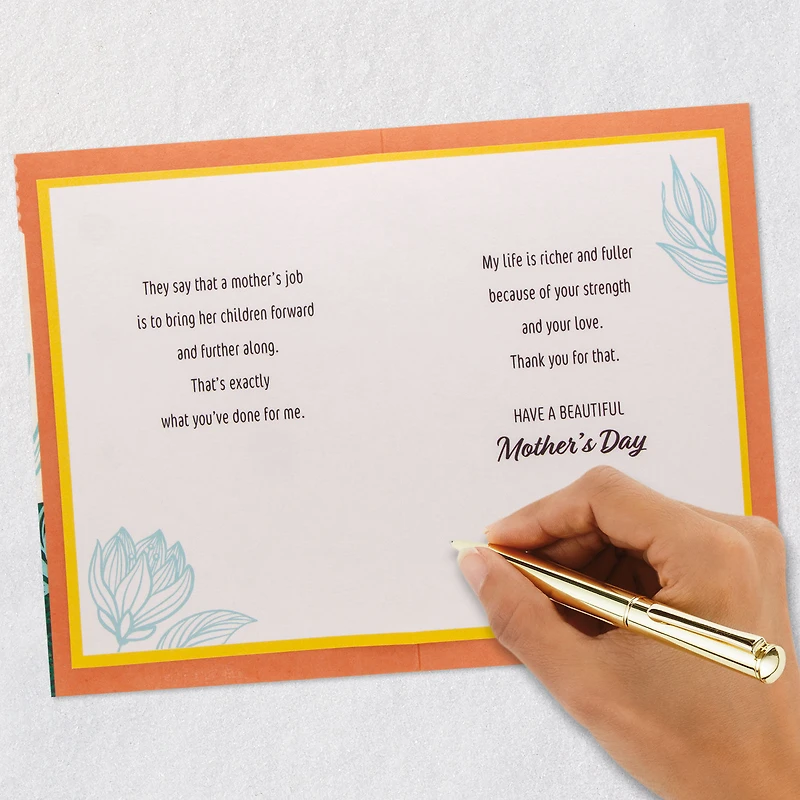 They say that a mother's job
is to bring her children forward
and further along.
That's exactly
what you've done for me.
My life is richer and fuller
because of your strength
and your love.
Thank you for that.
HAVE A BEAUTIFUL
Mother's Day